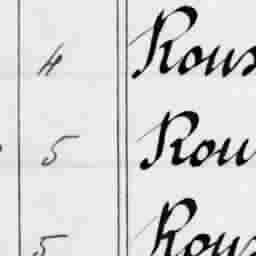 4 Rous
5 Rou
5 Rous